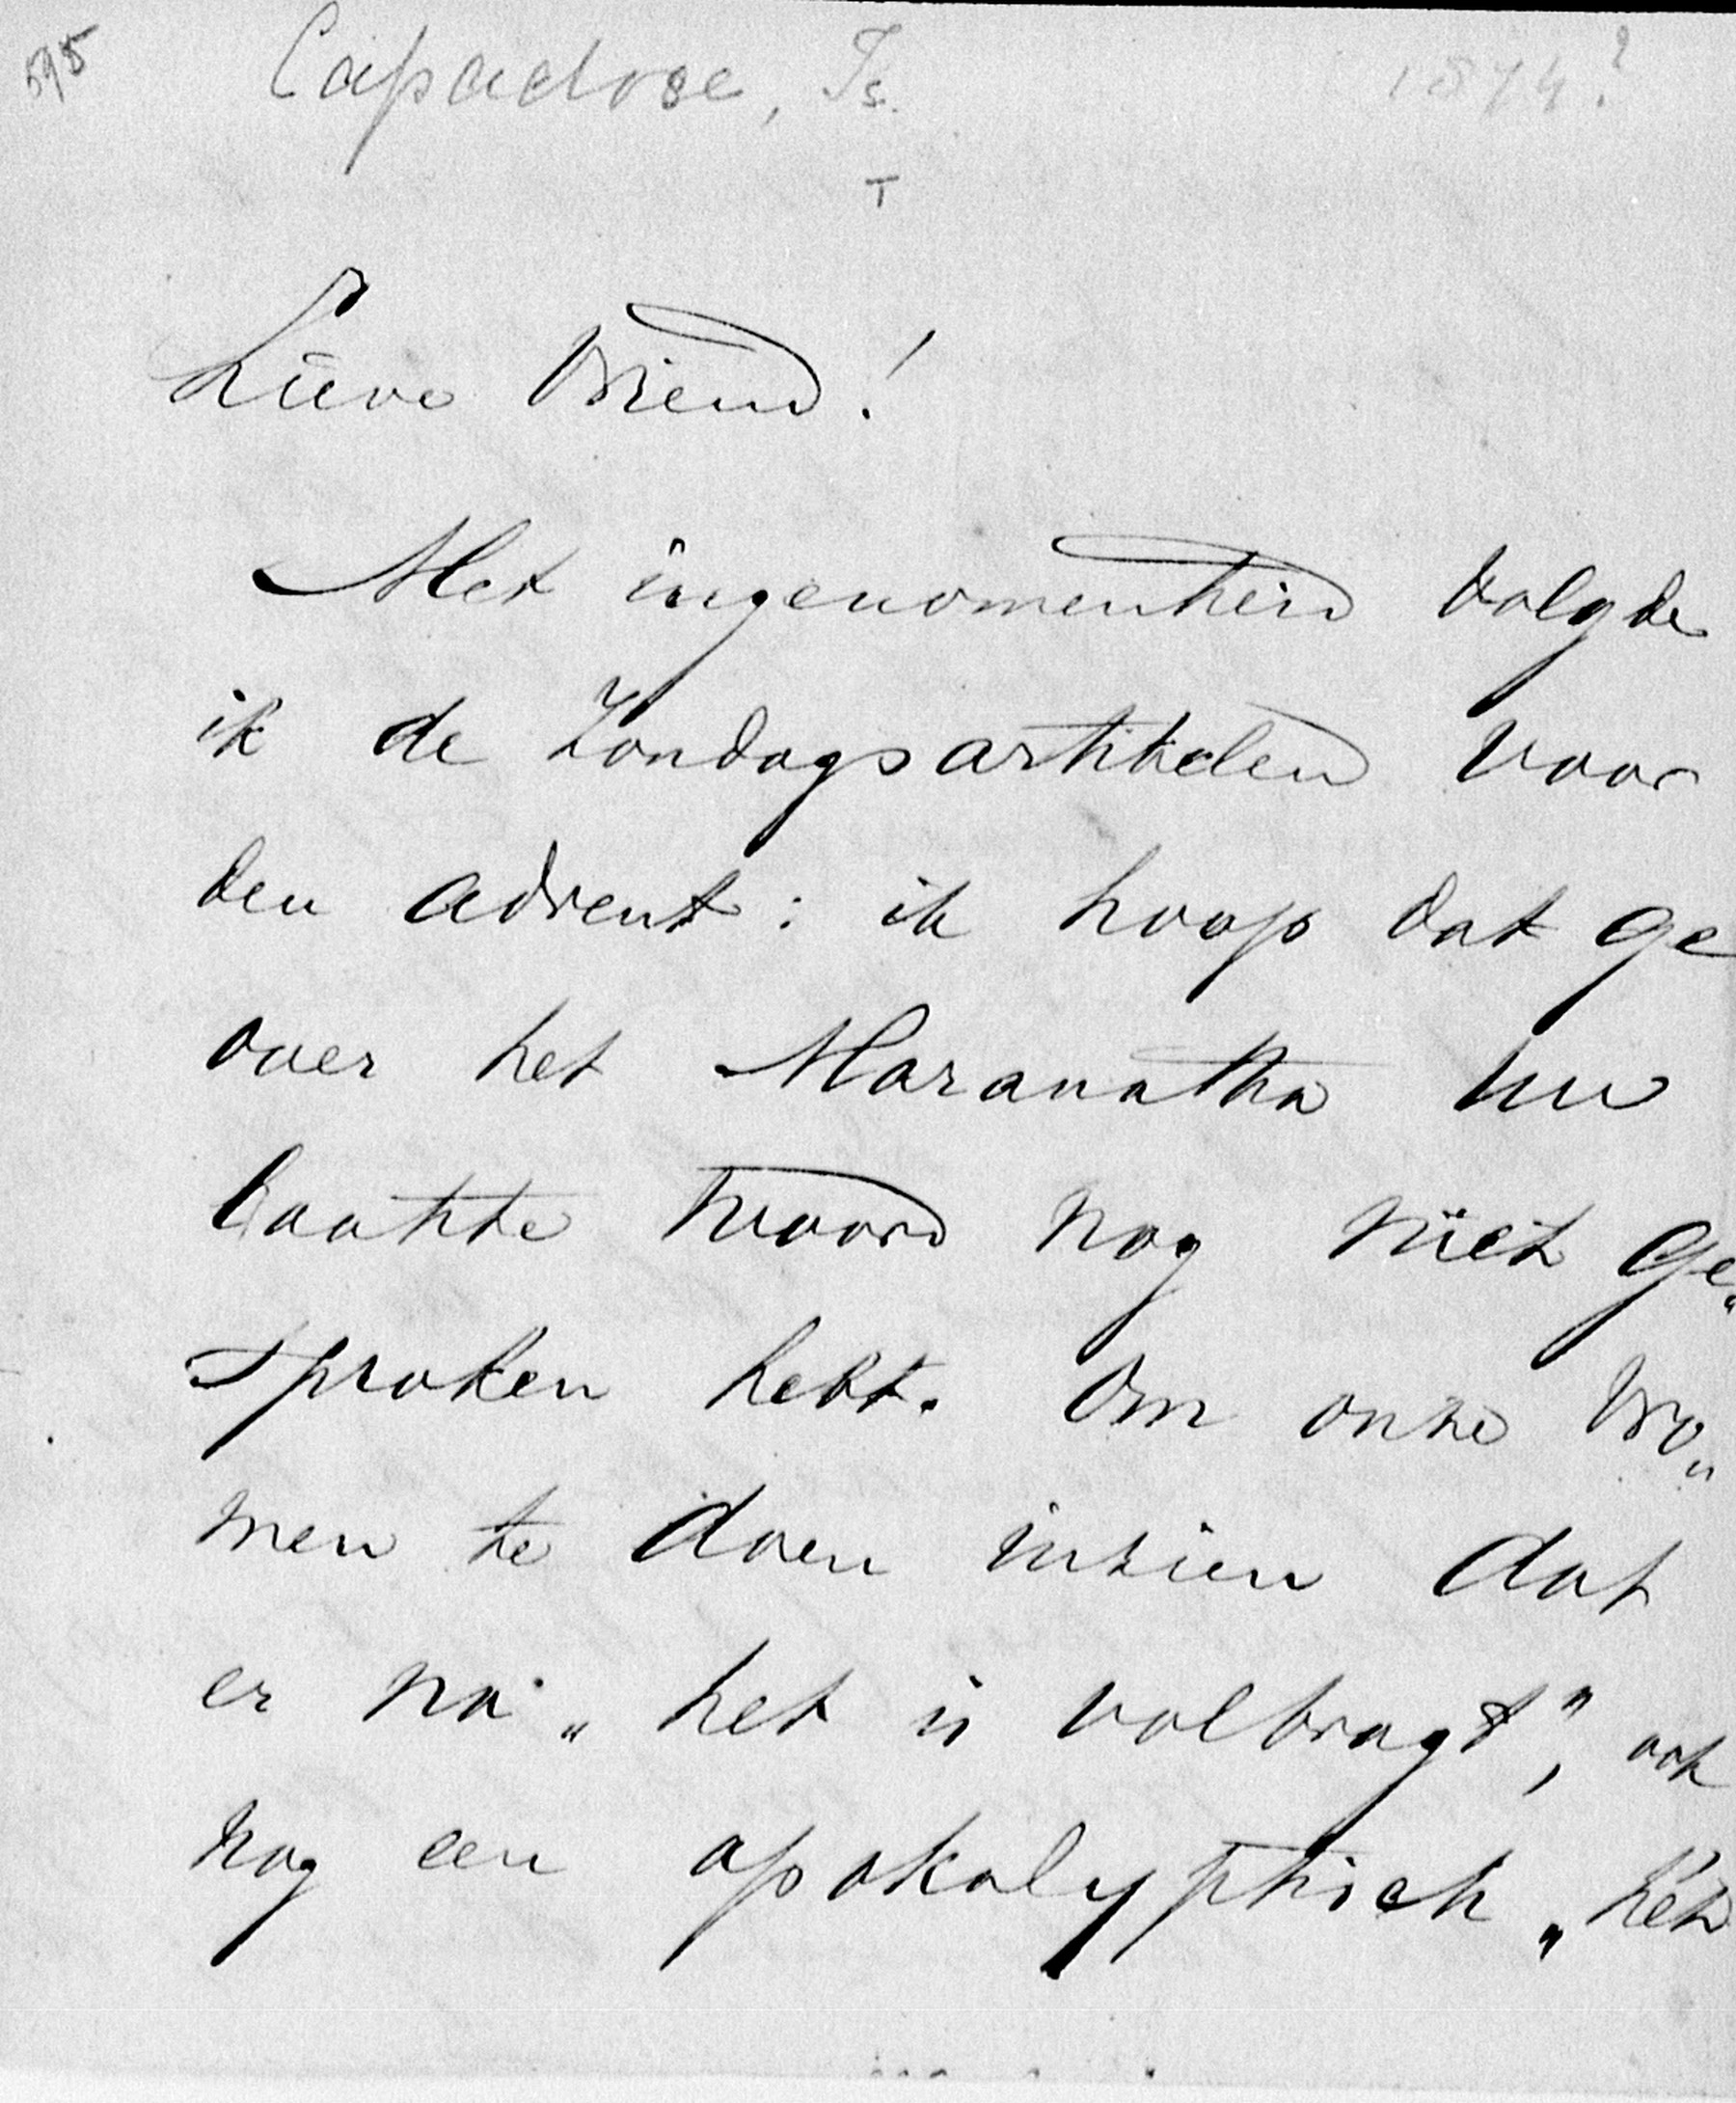 595 Capadose, Is. 1874?
T
Lieve Vriend!
Met ingenomenheid volgde
ik de Zondagsartikelen voor
den advent: ik hoop dat ge
over het Maranatha uw
laatste woord nog niet ge„
sproken hebt. Om onze vro„
men te doen inzien dat
er na „het is volbragt”, ook
nog een apokalyptisch „het